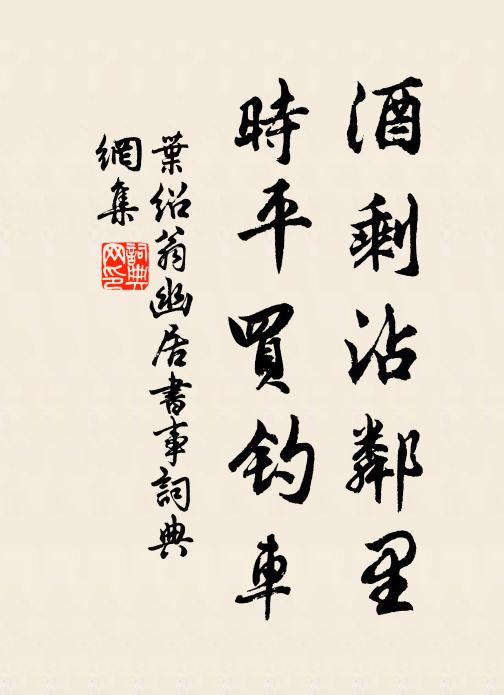 酒剩沾鄰里
時平買釣車
葉紹翁幽居書事詞典
網集
詞典网印